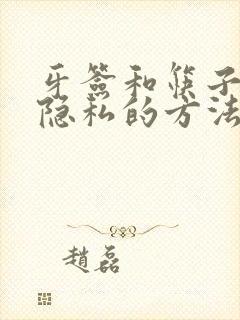 牙签和筷子
隐私的方法
趙磊